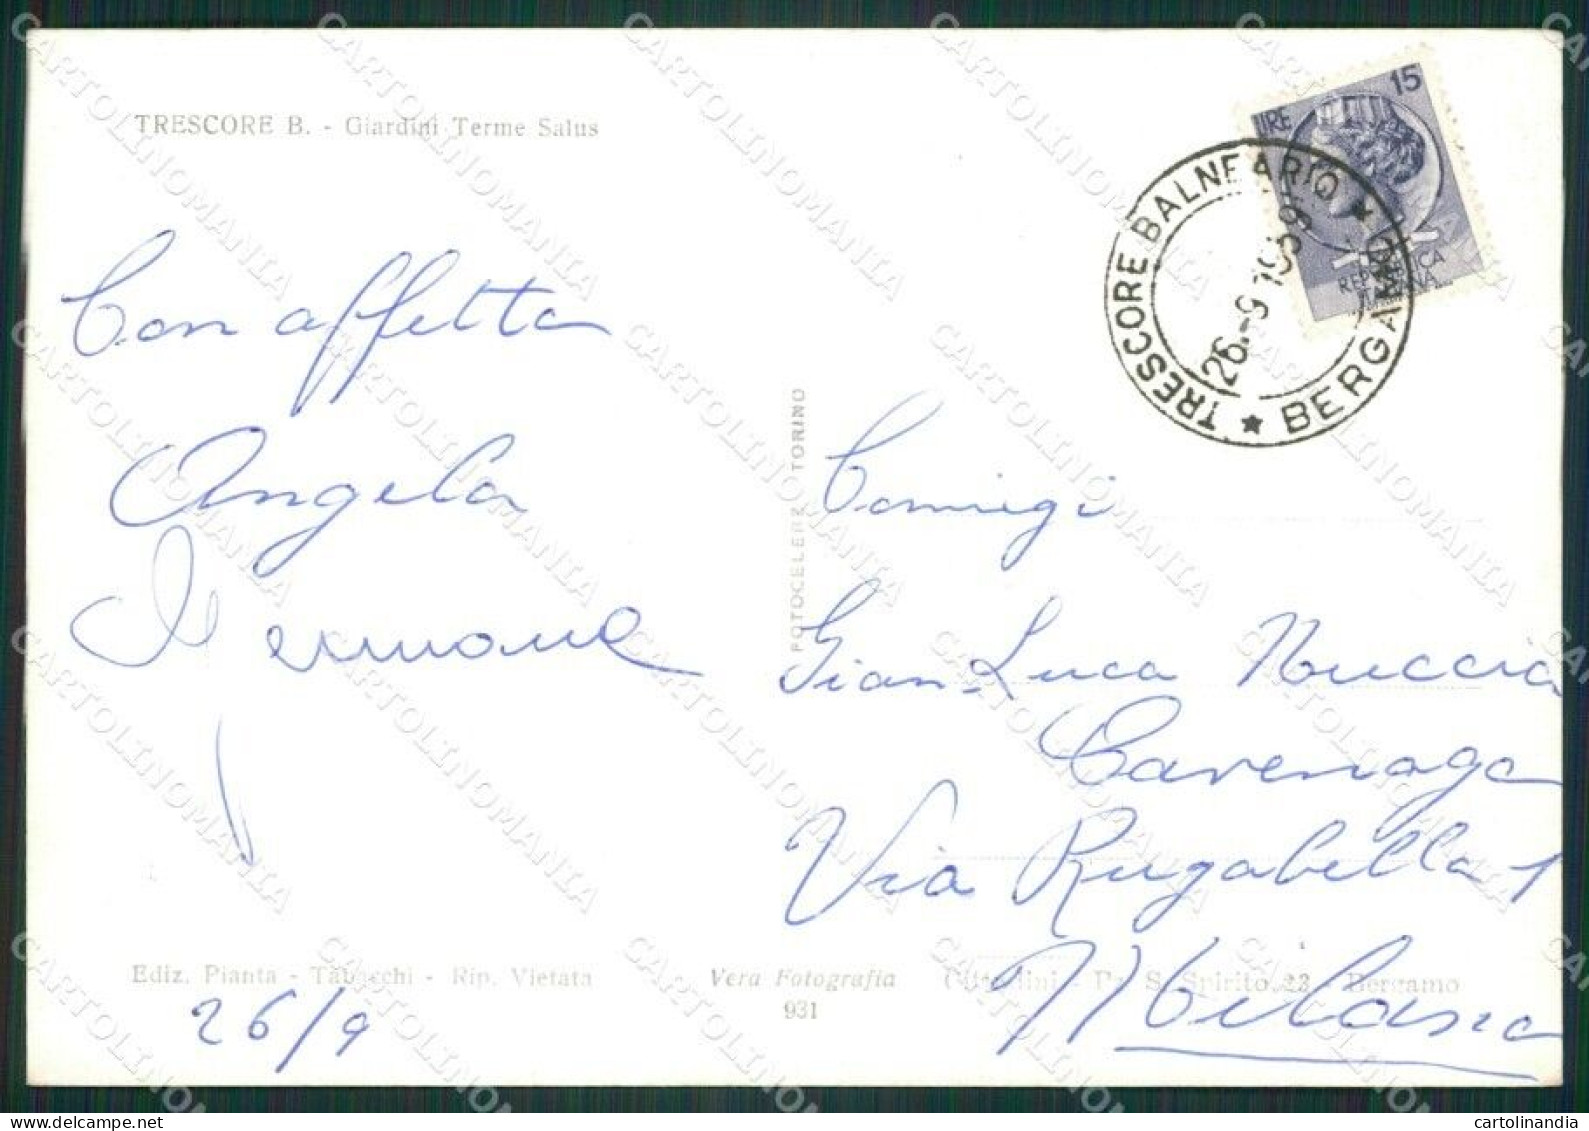 TRESCORE B. - Giardini Terme Salus
LIRE 15
REPUBBLICA
ITALIANA
TRESCORE BALNEARIO ★ BERGAMO ★
26.-9 1959
Con affetto
Angela
26/9
FOTOCELERE TORINO
Coniugi
Gian Luca Nuccia
Cavenago
Via Rugabella 1
Milano
Ediz. Pianta - Tabacchi - Rip. Vietata
Vera Fotografia
931
Cittadini - P.za S. Spirito, 23 - Bergamo
CARTOLINOMANIA
cartolinandia